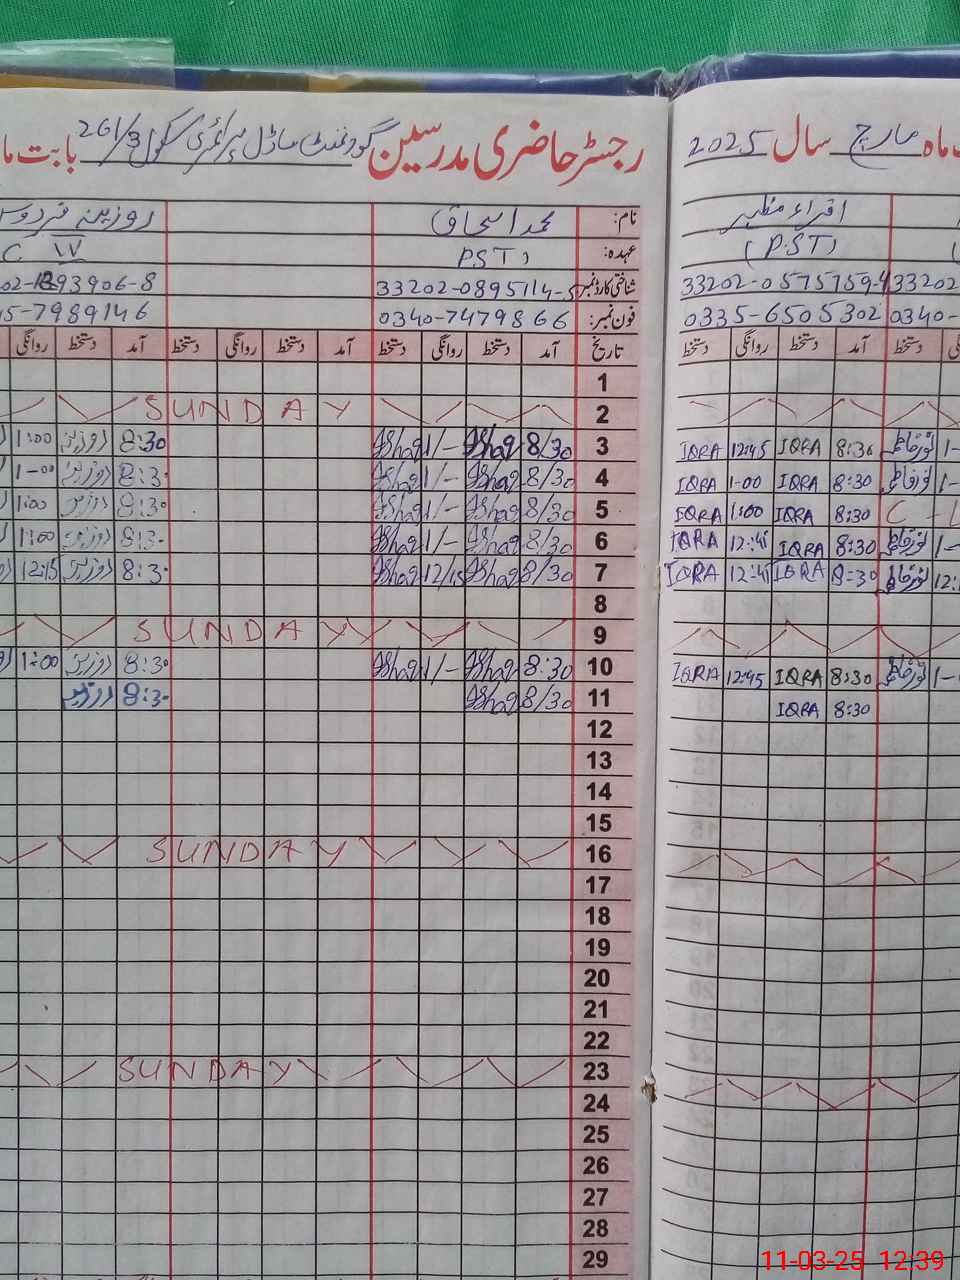 رجسٹر حاضری مدرسین گورنمنٹ ماڈل پرائمری سکول 261/3 بابت ماہ مارچ سال 2025
نام: محمد اسحاق روزینہ فردوس
عہدہ: PST
شناختی کارڈ نمبر 33202-0895114-5 93906-8
فون نمبر: 0340-7479866 7989146
تاریخ آمد دستخط روانگی دستخط آمد دستخط روانگی دستخط آمد دستخط روانگی
1
2 SUNDAY
3 8/30 Ishaq 1/- Ishaq 8:30 روزینہ 1:00
4 8/30 Ishaq 1/- Ishaq 8:3- روزینہ 1-00
5 8/30 Ishaq 1/- Ishaq 8:3- روزینہ 1:00
6 8/30 Ishaq 1/- Ishaq 8:3- روزینہ 1:00
7 8/30 Ishaq 12/15 Ishaq 8:3- روزینہ 12:15
8
9 SUNDAY
10 8:30 Ishaq 1/- Ishaq 8:3- روزینہ 1:00
11 8/30 Ishaq 8:3- روزینہ
12
13
14
15
16 SUNDAY
17
18
19
20
21
22
23 SUNDAY
24
25
26
27
28
29
اقراء مظہر
(PST)
33202-0575759-4 33202
0335-6505302 0340-
دستخط آمد دستخط روانگی دستخط
8:30 IQRA 12:45 IQRA
8:30 IQRA 1-00 IQRA
C-L 8:30 IQRA 1:00 IQRA
8:30 IQRA 12:45 IQRA
8:30 IQRA 12:45 IQRA
8:30 IQRA 12:45 IQRA
8:30 IQRA
11-03-25 12:39